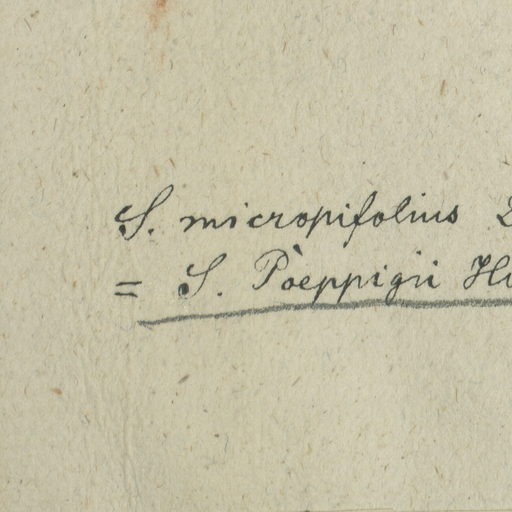 S. micropifolius
= S. Pòeppigii